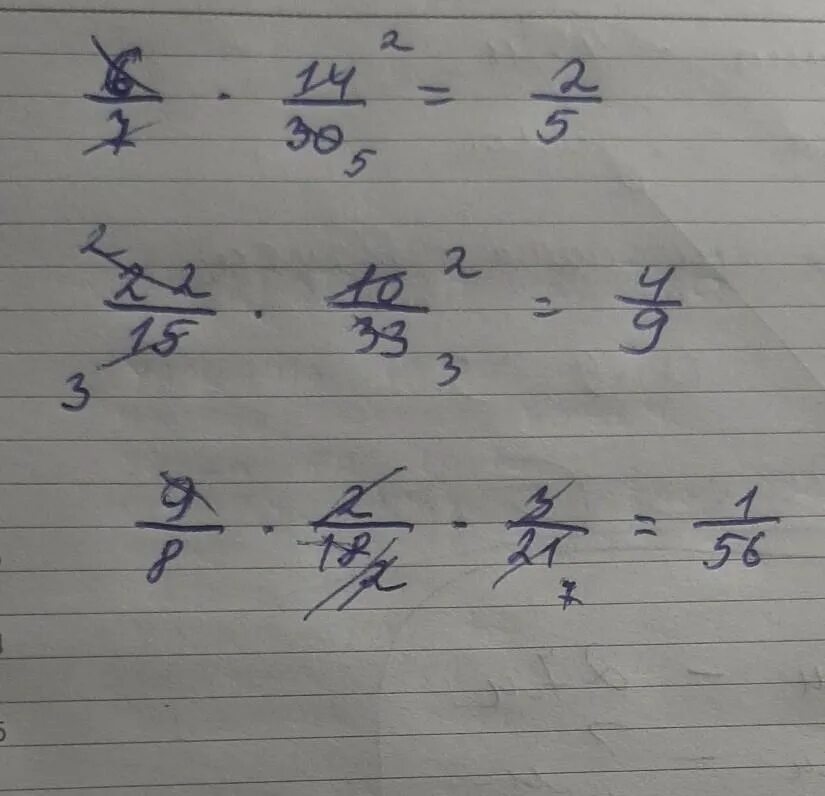 6/7 · 14/30 = 2/5
2
5
22/15 · 10/33 = 4/9
2 2
3 3
9/8 · 2/18 · 3/21 = 1/56
2 7